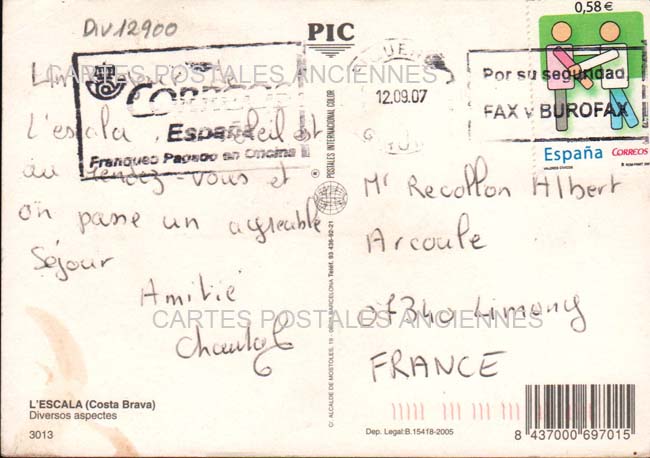 Div 12900
PIC
0,58 €
Correos
España
Franqueo Pagado en Oficina
12.09.07
Por su seguridad
FAX y BUROFAX
España CORREOS
CARTES POSTALES ANCIENNES
L'escala, soleil est
au rendez-vous et
on passe un agréable
Séjour
Amitié
Chantal
Mr Recollon Albert
Arcoule
07340 Limony
FRANCE
CARTES POSTALES ANCIENNES
POSTALES INTERNACIONAL COLOR
C/. ALCALDE DE MOSTOLES, 19 - BARCELONA Teléf. 93 436-92-21
L'ESCALA (Costa Brava)
Diversos aspectes
3013
Dep. Legal:B.15418-2005
8 437000 697015